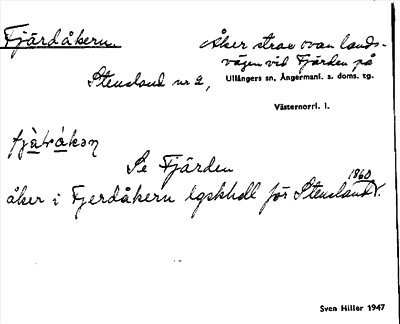 Fjärdåkern
Åker strax ovan lands-
vägen vid Fjärden på
Stensland nr 2,
Ullångers sn, Ångermanl. s. doms. tg.
Västernorrl. l.
Se Fjärden
1860
åker i Fjerdåkern lgskhdl för Stensland
Sven Hiller 1947